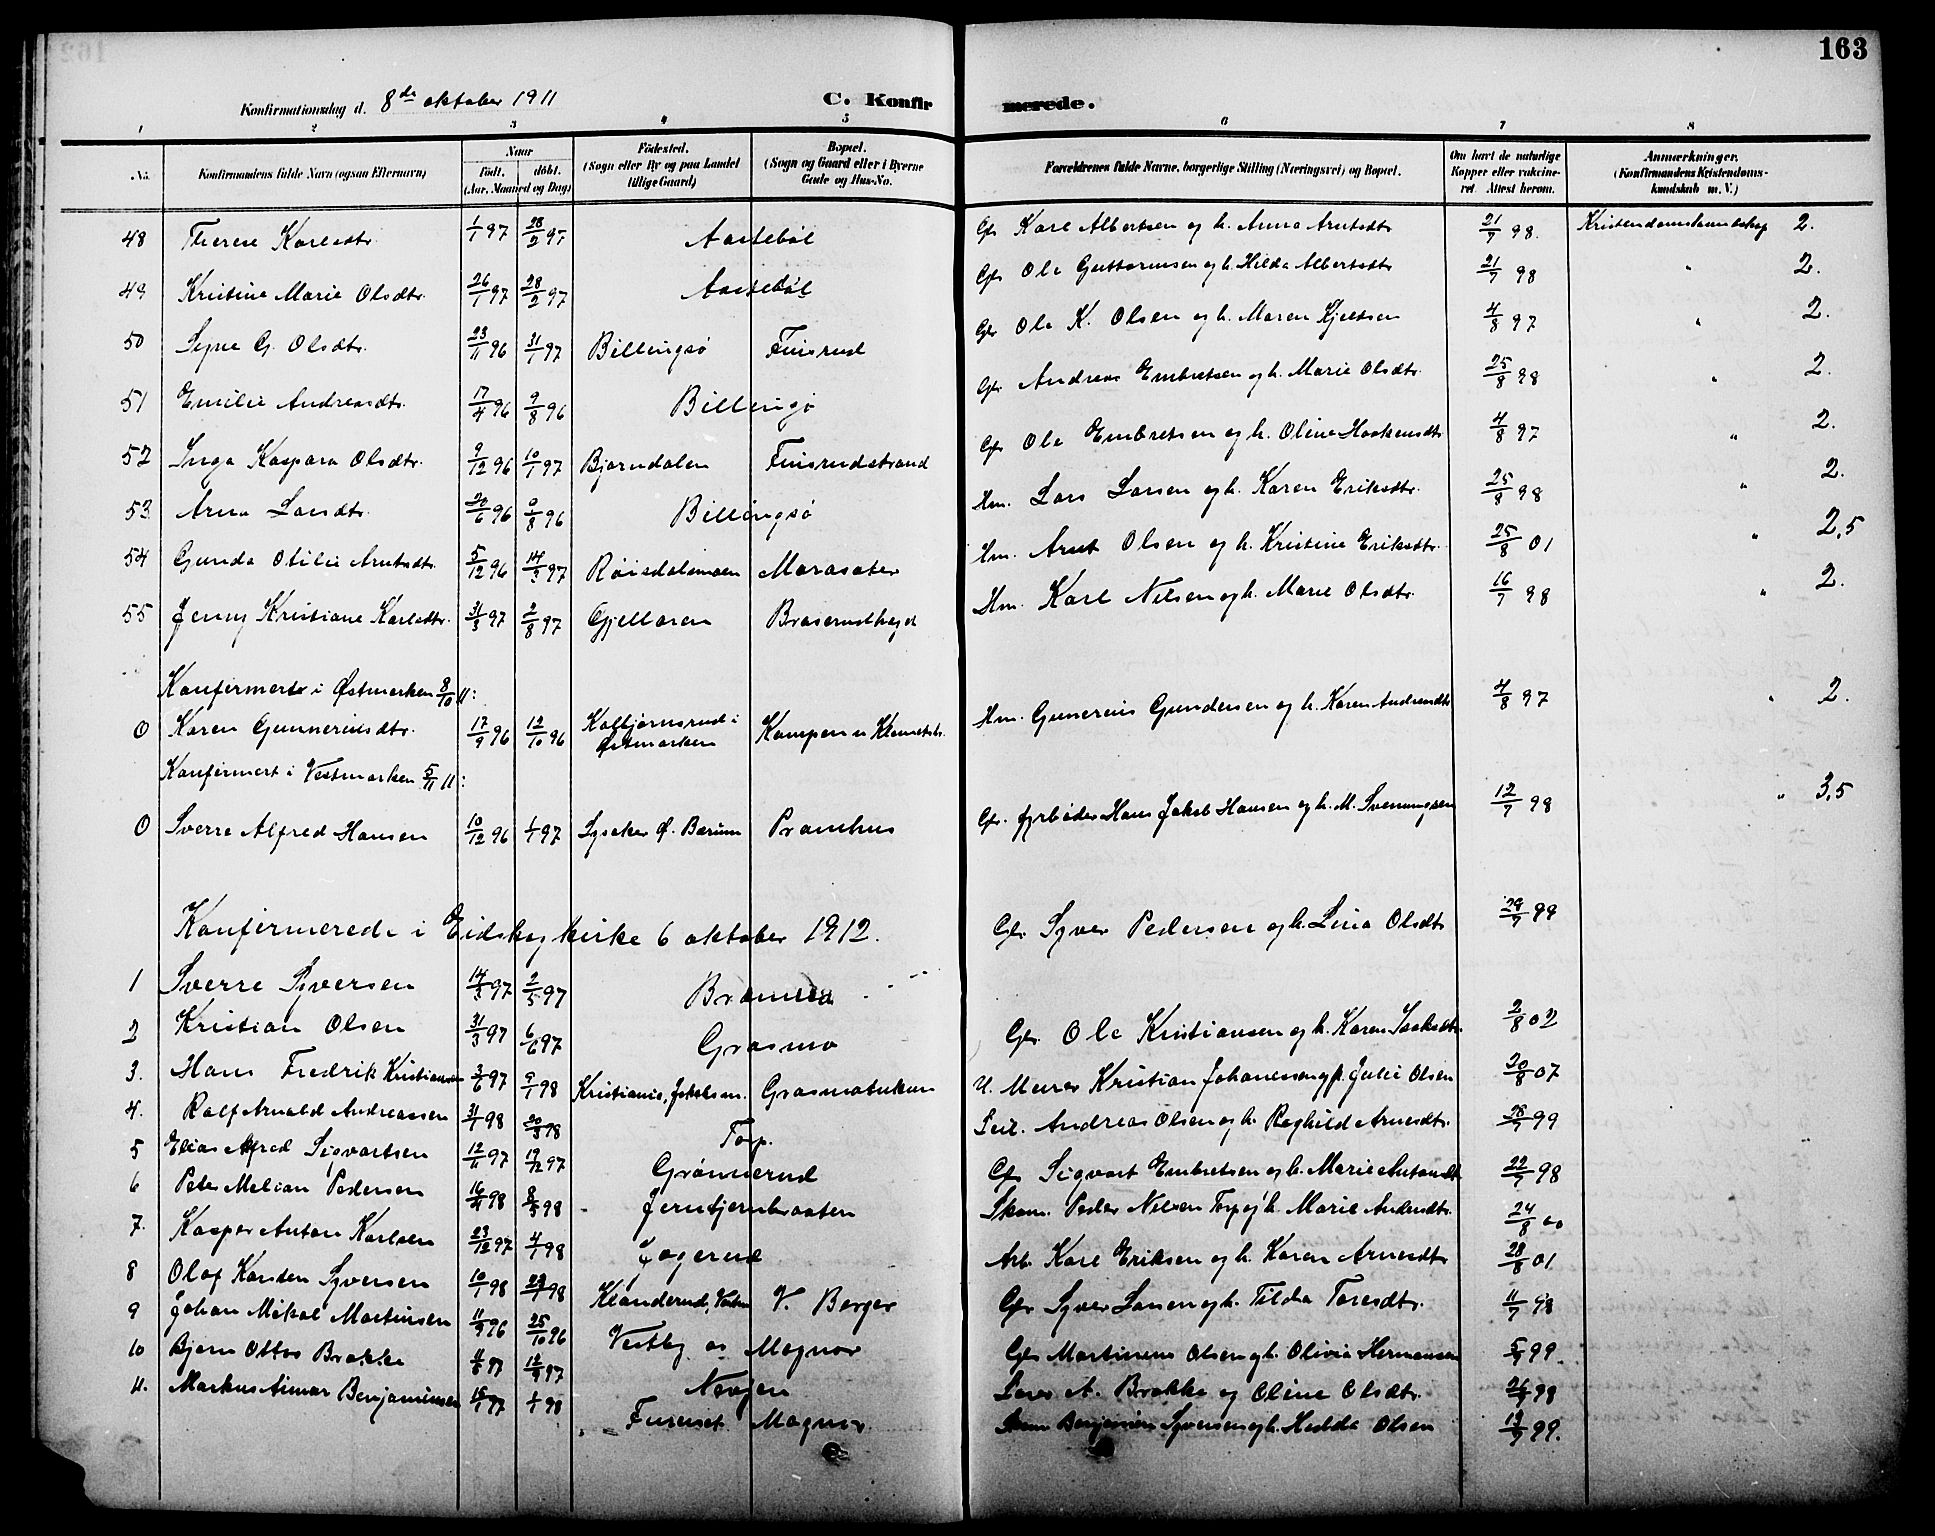 163
Konfirmationsdag d. 8de oktober 1911
C. Konfirmerede.
1 2 3 4 5 6 7 8
No.
Konfirmandens fulde Navn (ogsaa Efternavn)
Naar
født. døbt.
(Aar, Maaned og Dag)
Fødested.
(Sogn eller By og paa Landet
tillige Gaard)
Bopæl.
(Sogn og Gaard eller i Byerne
Gade og Hus-No.
Forældrenes fulde Navne, borgerlige Stilling (Næringsvei) og Bopæl.
Om havt de naturlige
Kopper eller vakcine-
ret. Attest herom.
Anmærkninger.
(Konfirmandens Kristendoms-
kundskab m. V.)
48 Therese Karlsdtr. 1/1 97 28/2 97 Aastebøl Gbr. Karl Albertsen og h. Anna Arntsdtr 21/7 98. Kristendomskundskap 2.
49 Kristine Marie Olsdtr. 26/1 97 28/2 97 Aastebøl Gbr. Ole Guttormsen og h. Hilda Albertsdtr 21/7 98 " 2.
50 Signe G. Olsdtr. 23/11 96 31/1 97 Billingsø Finsrud Gbr. Ole K. Olsen og h. Maren Kjeldsen 4/8 97 " 2.
51 Emilie Andreasdtr. 17/4 96 9/8 96 Billingsø Gbr. Andreas Embretsen og h. Marie Olsdtr. 25/8 98 " 2.
52 Inga Kaspara Olsdtr. 9/12 96 10/1 97 Bjørndalen Finsrudstrand Gbr. Ole Embretsen og h. Oline Haakensdtr 4/8 97 " 2.
53 Anna Larsdtr. 20/6 96 9/8 96 Billingsø Hm. Lars Larsen og h. Karen Eriksdtr. 25/8 98 " 2.
54 Gunda Otilie Arntsdtr. 5/12 96 14/3 97 Røisdalsmoen Marasæter Hm. Arnt Olsen og h. Kristine Eriksdtr. 25/8 01 " 2,5
55 Jenny Kristiane Karlsdtr. 31/3 97 2/8 97 Gjellaasen Braserudhøgd Hm. Karl Nilsen og h. Marie Olsdtr. 16/7 98 " 2.
Konfirmerte i Østmarken 8/10 11:
0 Karen Gunneriusdtr. 17/9 96 12/10 96 Kolbjørnsrud i
Østmarken Kampen u Hm. Gunerius Gundersen og h. Karen Andreasdtr 4/8 97 " 2.
Konfirmert i Vestmarken 5/11 11:
0 Sverre Alfred Hansen 10/12 96 1/1 97 Lysaker Ø. Bærum Pramhus Gbr. fyrbøder Hans Jakob Hansen og h. M. Svenningsen 12/7 98 " 3,5
Konfirmerede i Eidskog kirke 6 oktober 1912.
1 Sverre Syversen 14/3 97 2/5 97 Gbr. Syver Pedersen og h. Lina Olsdtr 29/7 99
2 Kristian Olsen 31/3 97 6/6 97 Grasmo Gbr. Ole Kristiansen og h. Karen 2/8 02
3. Hans Fredrik Kristiansen 3/6 97 9/1 98 Kristiania, Grasmotukun U. Murer Kristian Johanesen og p. Julie Olsen 30/8 07
4. Rolf Arnold Andreassen 31/1 98 20/3 98 Torp. Andreas Olsen og h. Raghild Arnesdtr. 28/7 99
5 Elias Alfred Sigvartsen 12/11 97 19/12 97 Grønnerud Gbr. Sigvart Embretsen og h. Marie Antonsdtr 22/7 98
6 Peter Melian Pedersen 16/4 98 8/5 98 Jerntjernbraaten Skom. Peder Nilsen Torp og h. Marie 24/8 00
7. Kasper Anton Karlsen 23/12 97 4/1 98 Jagerud Arb. Karl Eriksen og h. Karen Arnesdtr 28/8 01
8 Olaf Karsten Syversen 10/1 98 98 Klanderud, V. Berger Gbr. Syver Larsen og h. Tilda Toresdtr. 11/7 98
9 Johan Mikal Martinsen 11/9 96 25/10 96 Vestby as Magnor Gbr. Martinius Olsen og h. Olivia Hermansen 5/9 99.
10 Bjarn Ottos Brække 97 12/9 97 Lars A. Brække og Oline Olsdtr. 98
11. Markus Aimar Benjaminsen 97 1/1 98 Furuset Magnor Benjamin Syversen og h. Hulda Olsen 13/7 99.